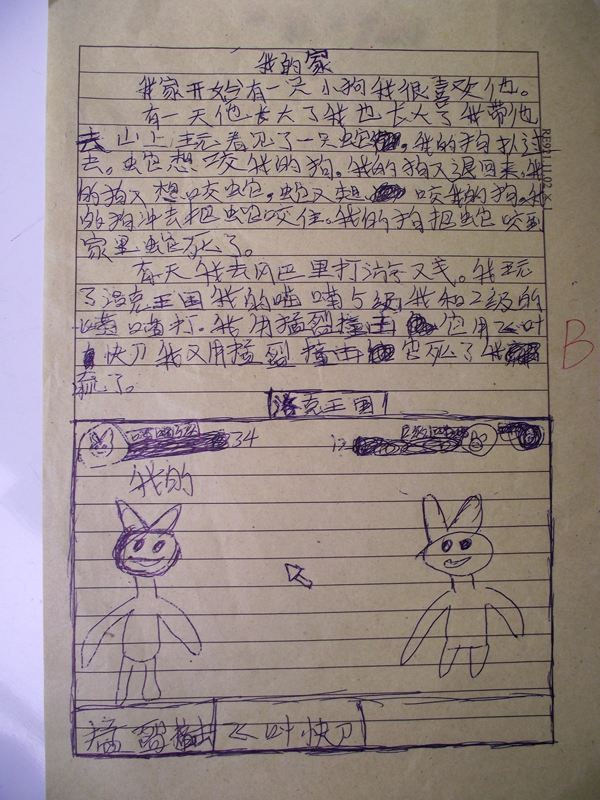 我的家
我家开始有一只小狗我很喜欢他。
有一天他长大了我也长大了我带他
去山上玩看见了一只蛇。我的狗扒过
去。蛇想咬我的狗。我的狗又退回来。我
的狗又想咬蛇,蛇又想咬我的狗。我
的狗冲去把蛇咬住。我的狗把蛇咬到
家里蛇死了。
有天我去网巴里打游戏。我玩
了洛克王国我的喵喵5级我和2级的
喵喵打。我用猛裂撞击它用飞叶
快刀我又用猛裂撞击它死了我
流了。
洛克王国
喵喵5级 34
2级喵喵
我的
猛裂撞击 飞叶快刀
B